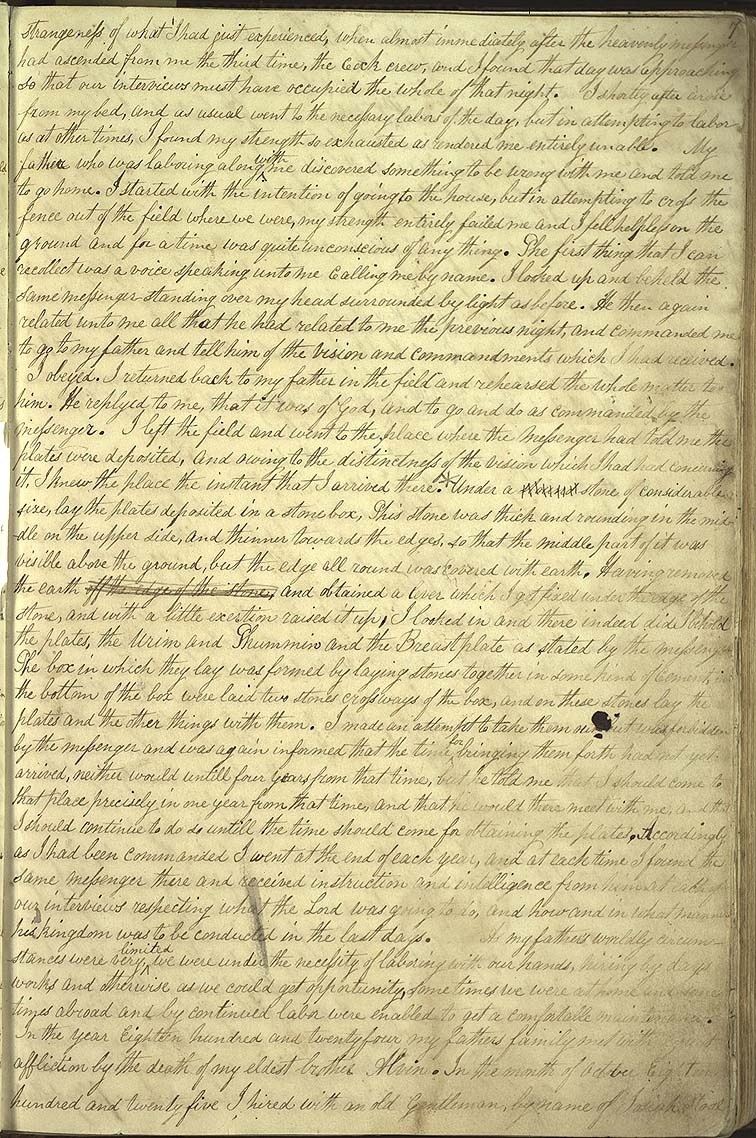 7
strangeness of what I had just experienced, when almost immediately after the heavenly messenger
had ascended from me the third time, the Cock crew, and I found that day was approaching
so that our interviews must have occupied the whole of that night. I shortly after arose
from my bed, and as usual went to the necessary labors of the day, but in attempting to labor
as at other times, I found my strength so exhausted as rendered me entirely unable. My
father who was laboring along with me discovered something to be wrong with me and told me
to go home. I started with the intention of going to the house, but in attempting to cross the
fence out of the field where we were, my strength entirely failed me and I fell helpless on the
ground and for a time was quite unconscious of any thing. The first thing that I can
recollect was a voice speaking unto me Calling me by name. I looked up and beheld the
same messenger standing over my head surrounded by light as before. He then again
related unto me all that he had related to me the previous night, and commanded me
to go to my father and tell him of the vision and commandments which I had received.
I obeyed. I returned back to my father in the field and rehearsed the whole matter to
him. He replyed to me, that it was of God, and to go and do as commanded by the
messenger. I left the field and went to the place where the messenger had told me the
plates were deposited, and owing to the distinctness of the vision which I had had concerning
it, I knew the place the instant that I arrived there. Under a stone of considerable
size, lay the plates deposited in a stone box, This stone was thick and rounding in the mid-
dle on the upper side, and thinner towards the edges, so that the middle part of it was
visible above the ground, but the edge all round was covered with earth. Having removed
the earth off the edge of the stone, and obtained a lever which I got fixed under the edge of the
stone, and with a little exertion raised it up, I looked in and there indeed did I behold
the plates, the Urim and Thummim and the Breastplate as stated by the messenger
The box in which they lay was formed by laying stones together in some kind of cement, in
the bottom of the box were laid two stones crossways of the box, and on these stones lay the
plates and the other things with them. I made an attempt to take them out but was forbidden
by the messenger and was again informed that the time for bringing them forth had not yet
arrived, neither would untill four years from that time, but he told me that I should come to
that place precisely in one year from that time, and that he would there meet with me, and that
I should continue to do so untill the time should come for obtaining the plates. Accordingly
as I had been commanded I went at the end of each year, and at each time I found the
same messenger there and received instruction and intelligence from him at each of
our interviews respecting what the Lord was going to do, and how and in what manner
his kingdom was to be conducted in the last days. As my fathers worldly circum-
stances were very limited we were under the necessity of laboring with our hands, hiring by days
works and otherwise as we could get opportunity, some times we were at home and some
times abroad and by continued labor were enabled to get a comfortable maintenance.
In the year Eighteen hundred and twentyfour my fathers family met with a great
affliction by the death of my eldest brother Alvin. In the month of October Eighteen
hundred and twenty five I hired with an old Gentleman, by name of Josiah Stoal